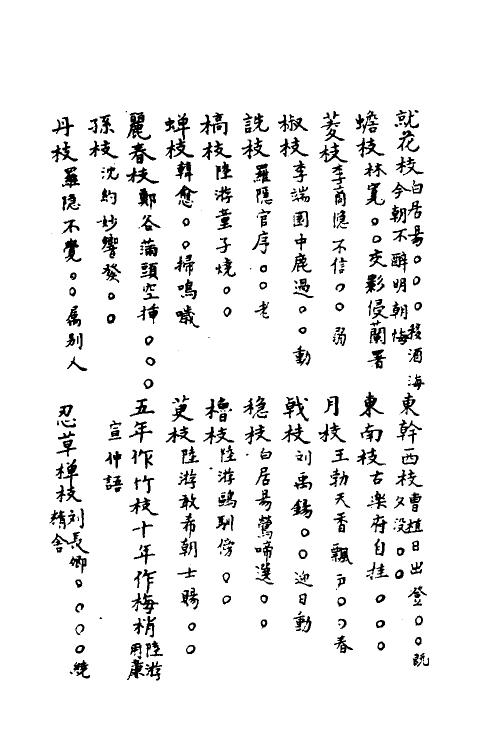 就花枝 白居易○○○移酒海今朝不醉明朝悔
東幹西枝 曹植日出登○○既夕没○○
蟾枝 林寬○○交影侵蘭署
東南枝 古樂府自挂○○○
菱枝 李商隱不信○○弱
月枝 王勃天香飄戶○○春
椒枝 李端園中鹿過○○動
戟枝 刘禹錫○○迎日動
詵枝 羅隱官序○○老
穩枝 白居易鶯啼選○○
槁枝 陸游童子燒○○
櫓枝 陸游鷗馴傍○○
蝉枝 韓愈○○掃鳴噦
莫枝 陸游敢希朝士賜○○
麗春枝 鄭谷滿頭空插○○○
五年作竹枝十年作梅梢 陸游用
宣仲語
孫枝 沈約妙響發○○
丹枝 羅隱不覺○○屬別人
忍草禅枝 刘長卿○○○○繞精舍